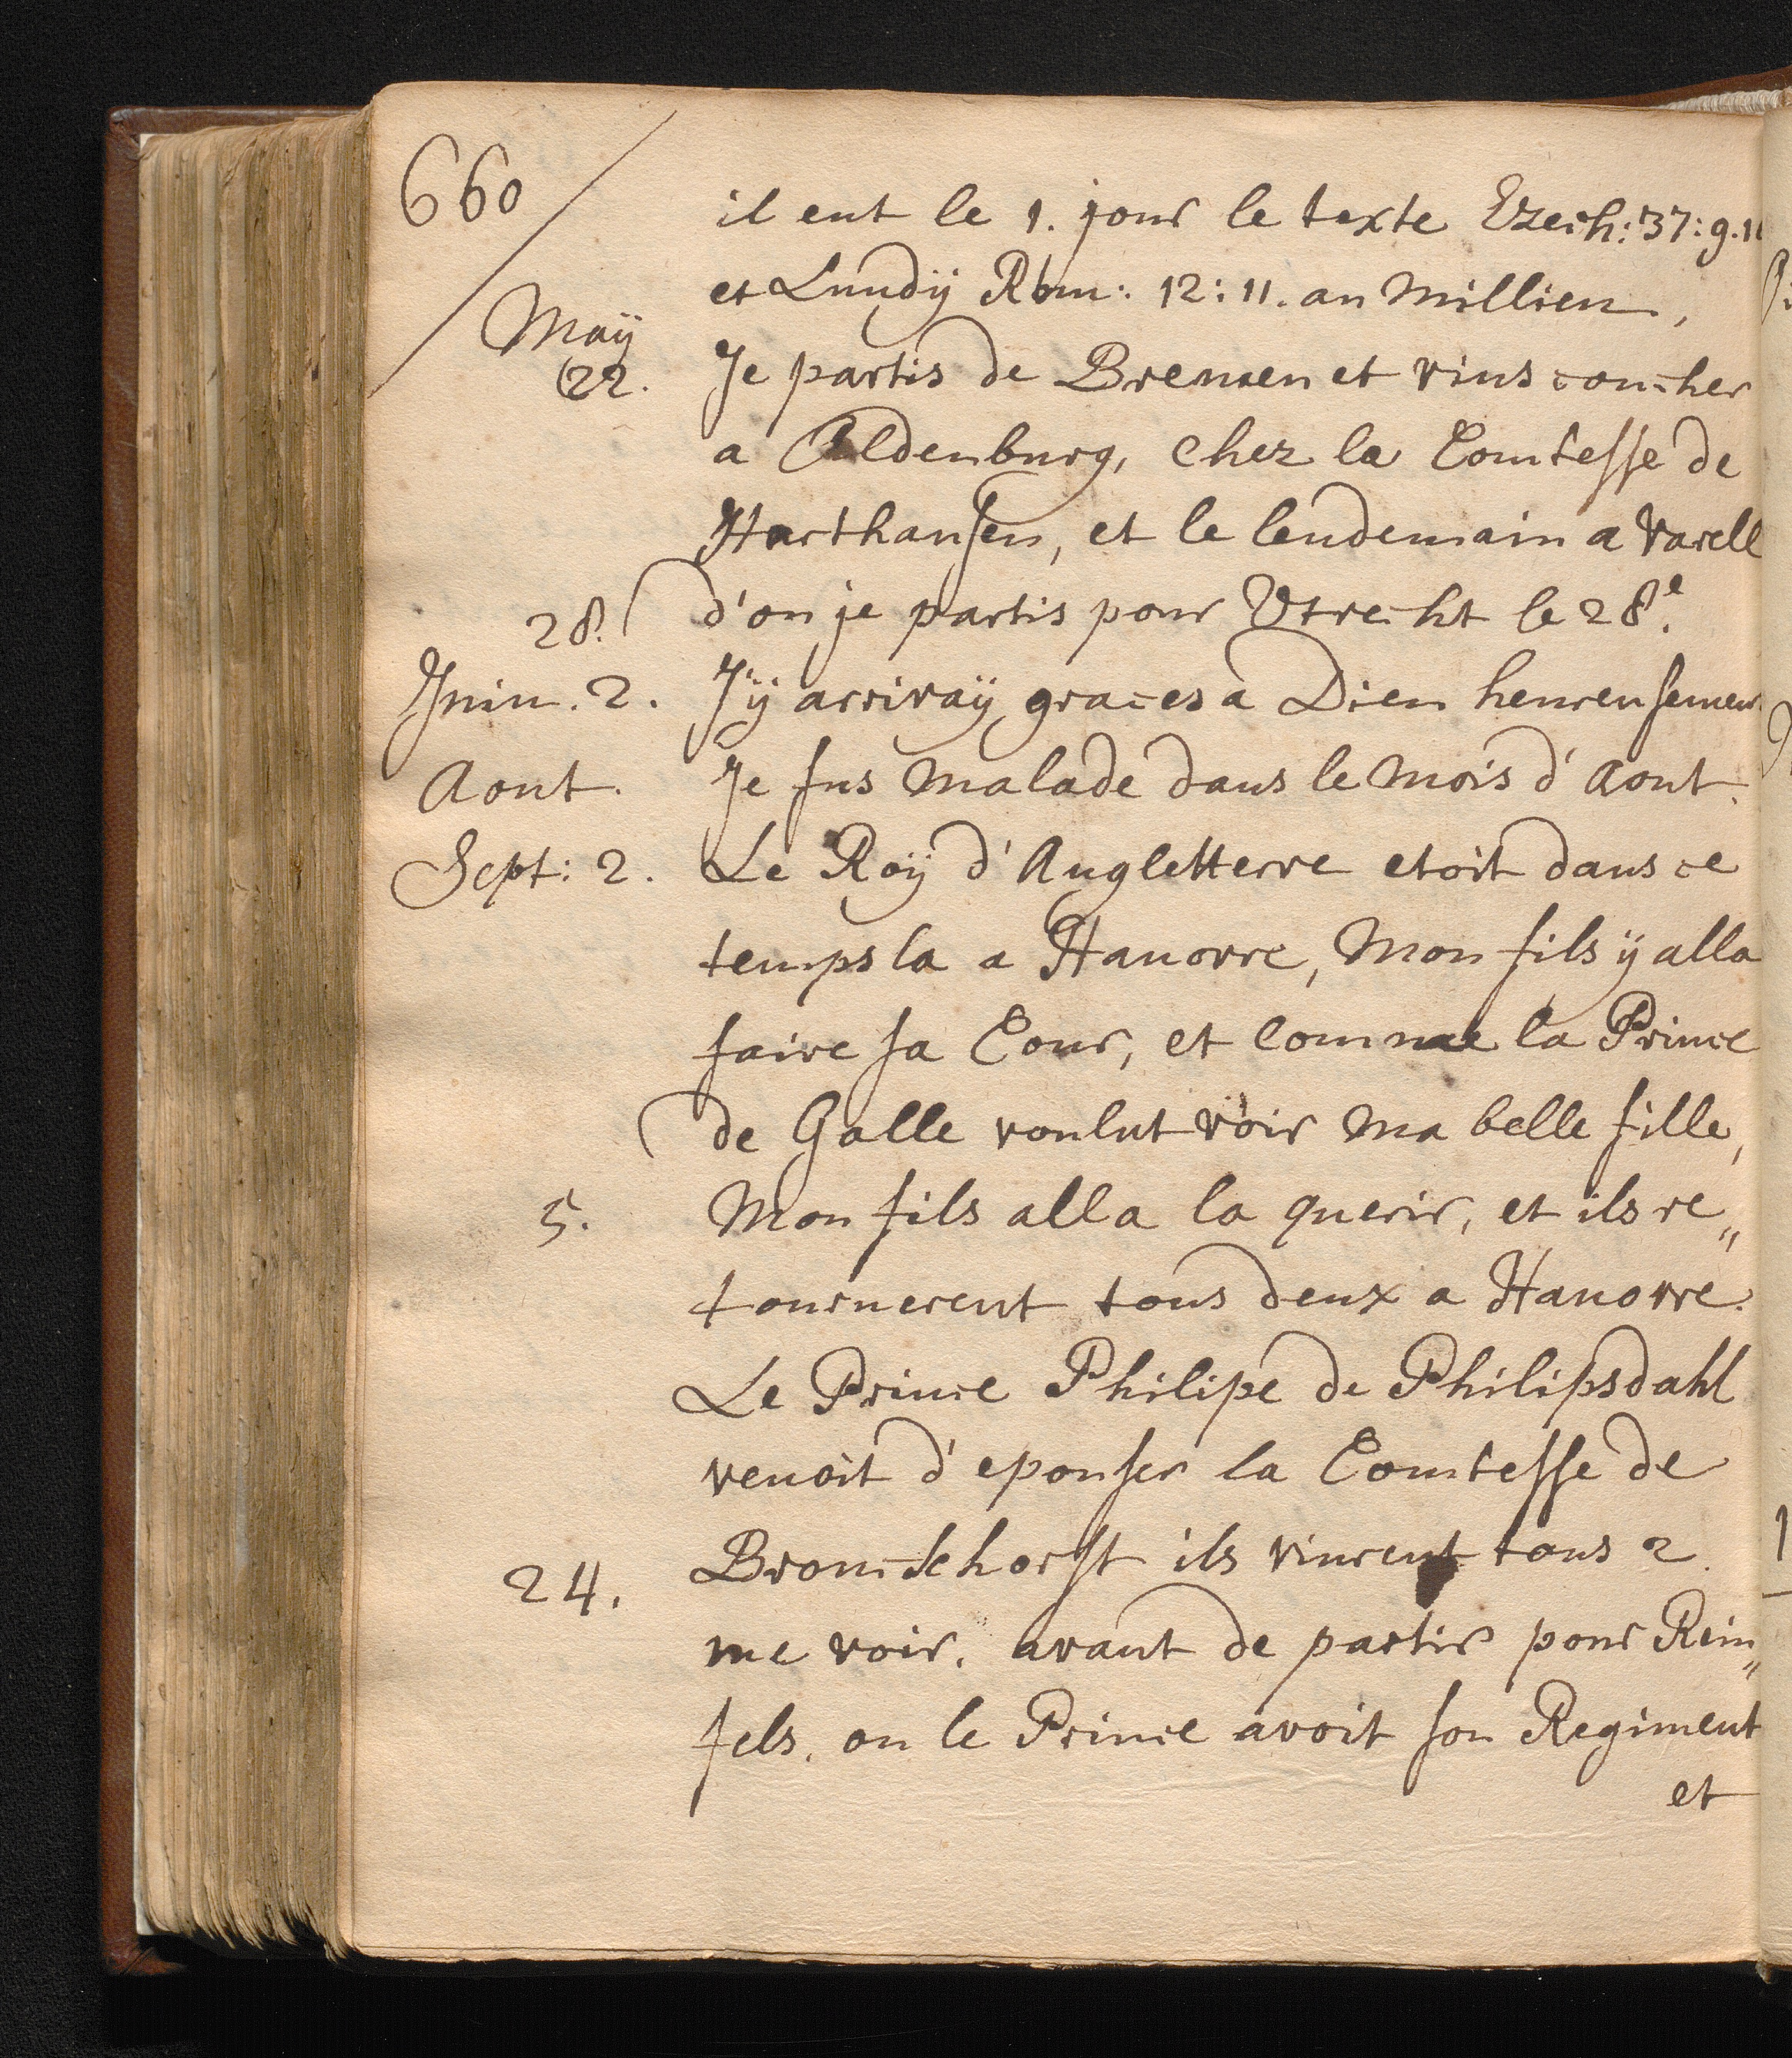 660
il eut le 1. jour le texte Ezech: 37: 9.
et Lundÿ Rom: 12: 11. au Millieu,
Maÿ
22. Je partis de Bremen et vins coucher
a Oldenburg, chez la Comtesse de
Harthausen, et le lendemain a Varell
28. d'ou je partis pour Utrecht le 28e.
Juin. 2. J'ÿ arrivaÿ graces a Dieu heureusemen
Aout. Je fus malade dans le Mois d'Aout.
Sept: 2. Le Roÿ d'Angletterre etoit dans ce
temps la a Hanovre, Mon fils ÿ alla
faire sa Cour, et comme la Prince
de Galle voulut voir ma belle fille,
5. Mon fils alla la querir, et ils re„
tournerent tous deux a Hanovre.
Le Prince Philipe de Philipsdahl
venoit d'epouser la Comtesse de
24. Bronckhorst ils vinrent tous 2.
me voir. avant de partir pour Rein„
fels. ou le Prince avoit son Regiment
et